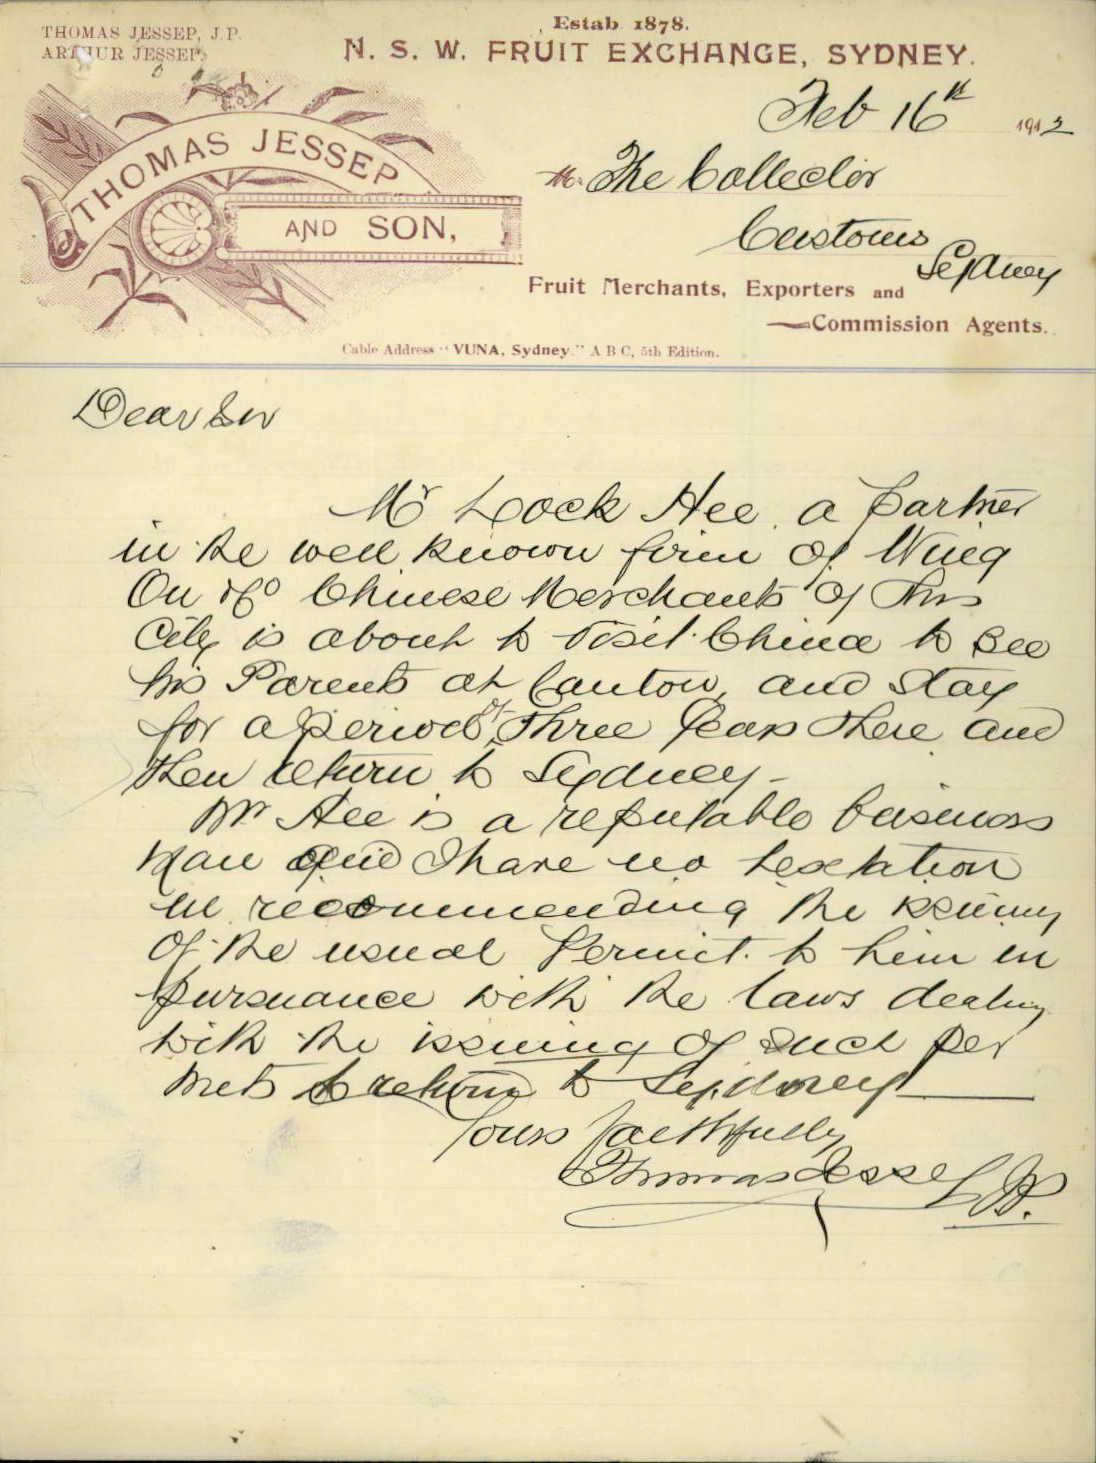 THOMAS JESSEP, J.P.
ARTHUR JESSEP.
Estab 1878.
N. S. W. FRUIT EXCHANGE, SYDNEY.
THOMAS JESSEP
AND SON,
Feb 16th 1912
Mr. The Collector
Customs
Sydney
Fruit Merchants, Exporters and
Commission Agents.
Cable Address "VUNA, Sydney." A B C, 5th Edition.
Dear Sir
Mr Lock Hee, a partner
in the well known firm of Wing
On & Co Chinese Merchants of this
City is about to visit China to see
his Parents at Canton, and stay
for a period of three years there and
then return to Sydney -
Mr Hee is a reputable business
man and I have no hesitation
in recommending the issuing
of the usual Permit to him in
pursuance with the laws dealing
with the issuing of such per
mits to return to Sydney
Yours faithfully
Thomas Jessep JP.